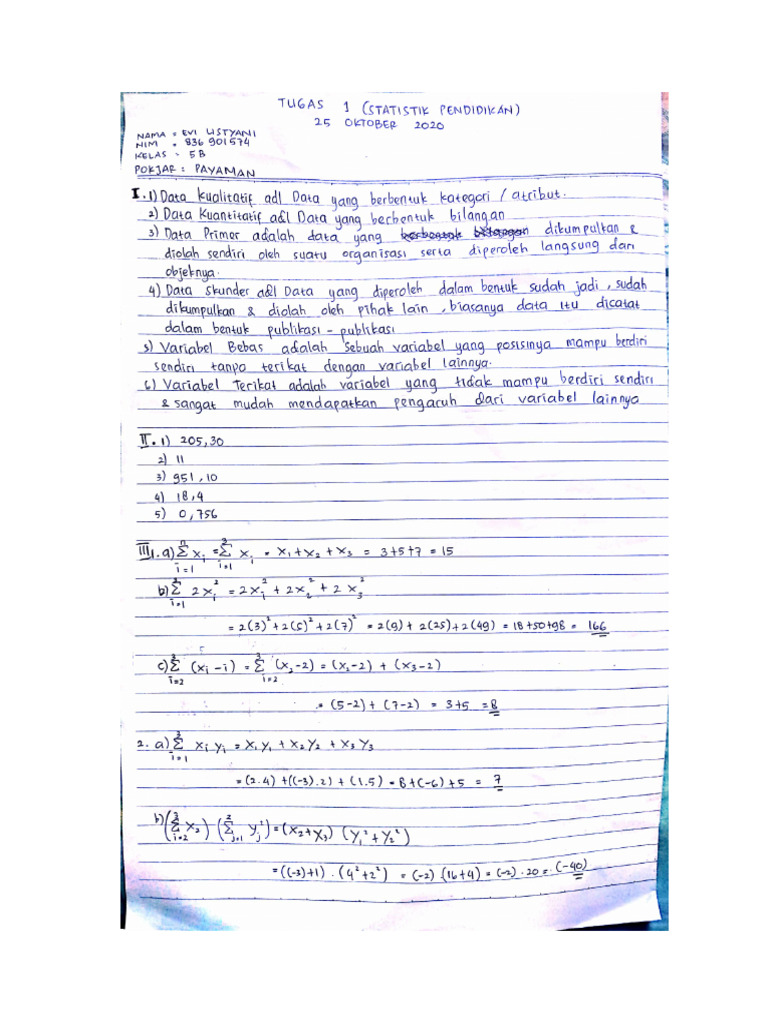 TUGAS 1 (STATISTIK PENDIDIKAN)
25 OKTOBER 2020
NAMA = EVI LISTYANI
NIM = 836901574
KELAS : 5B
POKJAR : PAYAMAN
I. 1) Data Kualitatif adl Data yang berbentuk kategori / atribut.
2) Data Kuantitatif adl Data yang berbentuk bilangan
3) Data Primer adalah data yang berbentuk bilangan dikumpulkan &
diolah sendiri oleh suatu organisasi serta diperoleh langsung dari
objeknya.
4) Data Skunder adl Data yang diperoleh dalam bentuk sudah jadi, sudah
dikumpulkan & diolah oleh pihak lain, biasanya data itu dicatat
dalam bentuk publikasi - publikasi
5) Variabel Bebas adalah sebuah variabel yang posisinya mampu berdiri
sendiri tanpa terikat dengan variabel lainnya.
6) Variabel Terikat adalah variabel yang tidak mampu berdiri sendiri
& sangat mudah mendapatkan pengaruh dari variabel lainnya
II. 1) 205,30
2) 11
3) 951,10
4) 18,4
5) 0,756
III 1. a) n∑i=1 xi = 3∑i=1 xi = x1 + x2 + x3 = 3+5+7 = 15
b) 3∑i=1 2xi² = 2x1² + 2x2² + 2x3²
= 2(3)² + 2(5)² + 2(7)² = 2(9) + 2(25) + 2(49) = 18+50+98 = 166
c) 3∑i=2 (xi - i) = 3∑i=2 (x2 - 2) = (x2 - 2) + (x3 - 2)
= (5-2) + (7-2) = 3+5 = 8
2. a) 3∑i=1 xi y1 = x1 y1 + x2 y2 + x3 y3
= (2.4) + ((-3).2) + (1.5) = 8 + (-6) + 5 = 7
b) (3∑i=2 x2) (2∑j=1 yj²) = (x2 + x3) (y1² + y2²)
= ((-3)+1) . (4² + 2²) = (-2) (16+4) = (-2) . 20 = (-40)